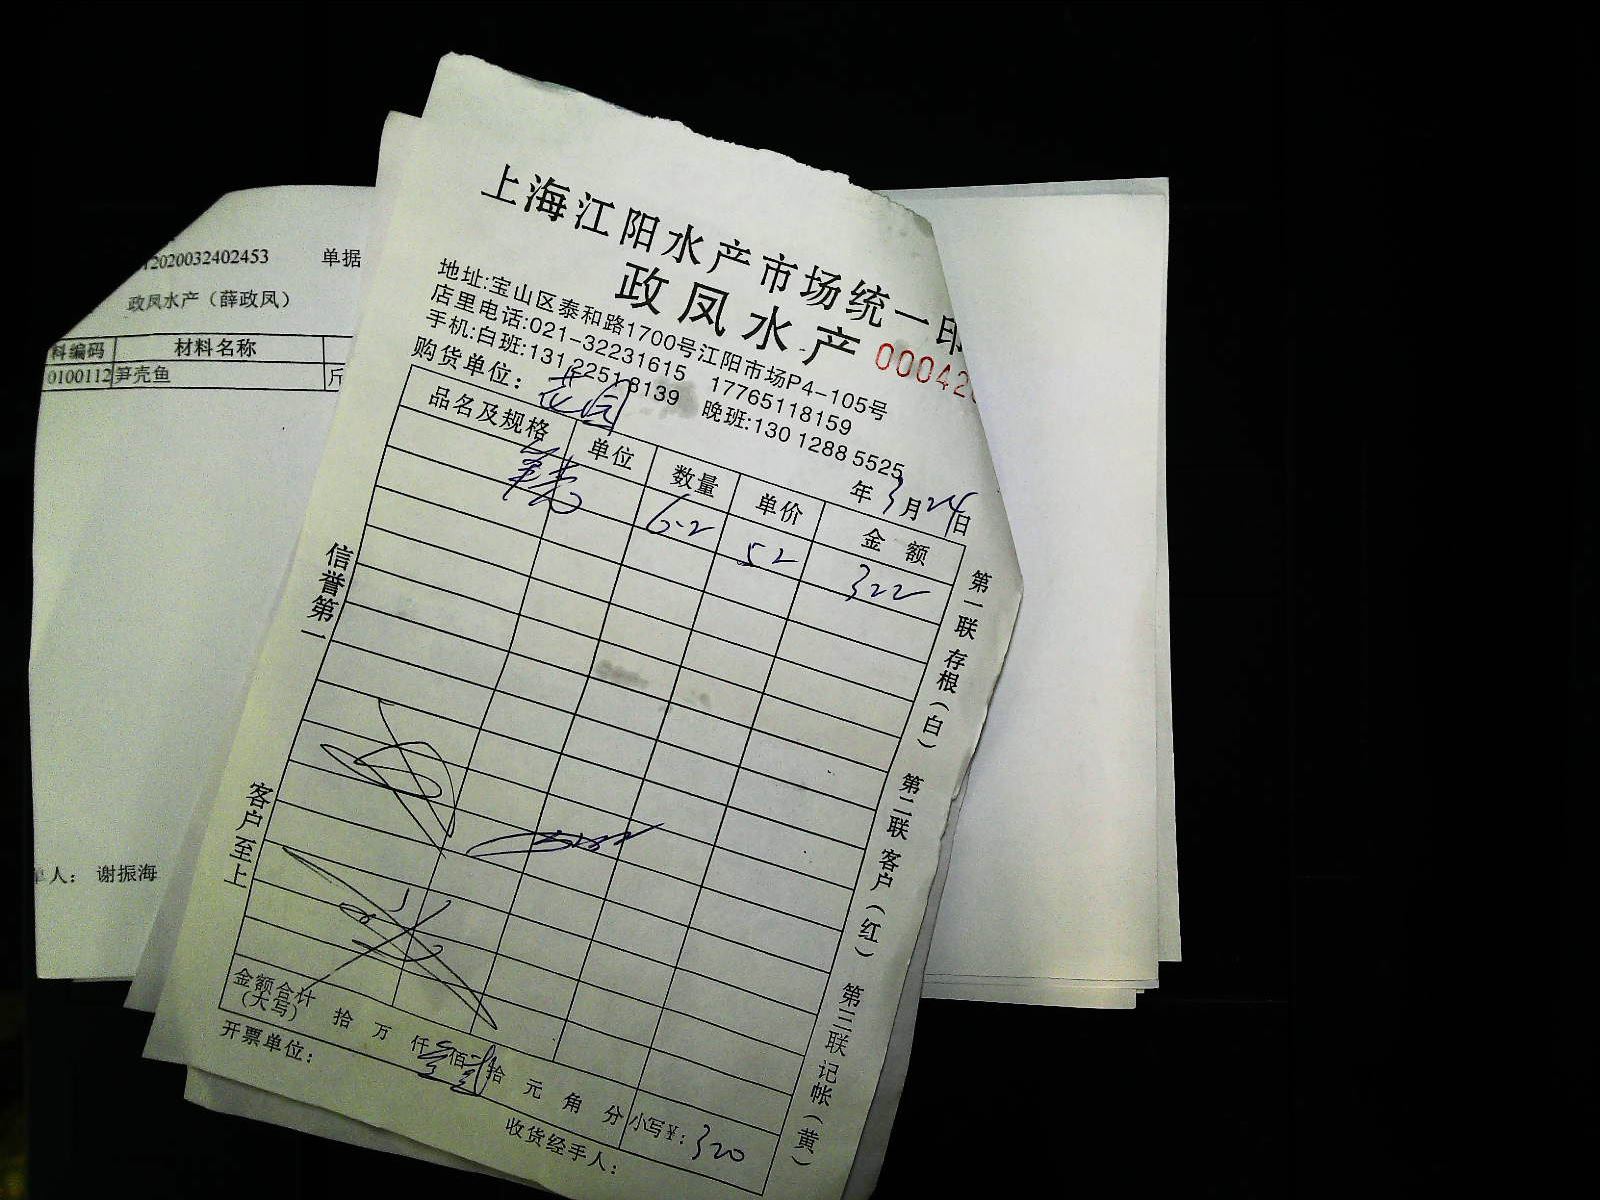 2020032402453 单据
政凤水产（薛政凤）
料编码 材料名称
0100112 笋壳鱼 斤
人： 谢振海
上海江阳水产市场统一印
政凤水产 00042
地址:宝山区泰和路1700号江阳市场P4-105号
店里电话:021-32231615 17765118159
手机:白班:131 2251 8139 晚班:130 1288 5525
购货单位： 花园
年3月24日
品名及规格 单位 数量 单价 金额
笋壳 6.2 52 322
信誉第一
客户至上
第一联 存根（白） 第二联 客户（红） 第三联 记帐（黄）
金额合计
（大写） 拾 万 仟 叁佰 贰拾 元 角 分 小写¥: 320
开票单位：
收货经手人：